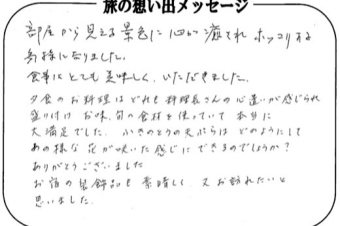 旅の想い出メッセージ
部屋から見える景色に心が癒されホッコリする
気持になりました。
食事はとても美味しく、いただきました。
夕食のお料理はどれも料理長さんの心遣いが感じられ
盛り付け お味、旬の食材を使っていて 本当に
大満足でした。ふきのとうの天ぷらは どのようにして
あの様な花が咲いた感じにできるのでしょうか?
ありがとうございました
お宿の装飾品も素晴しく 又お訪れたいと
思いました。